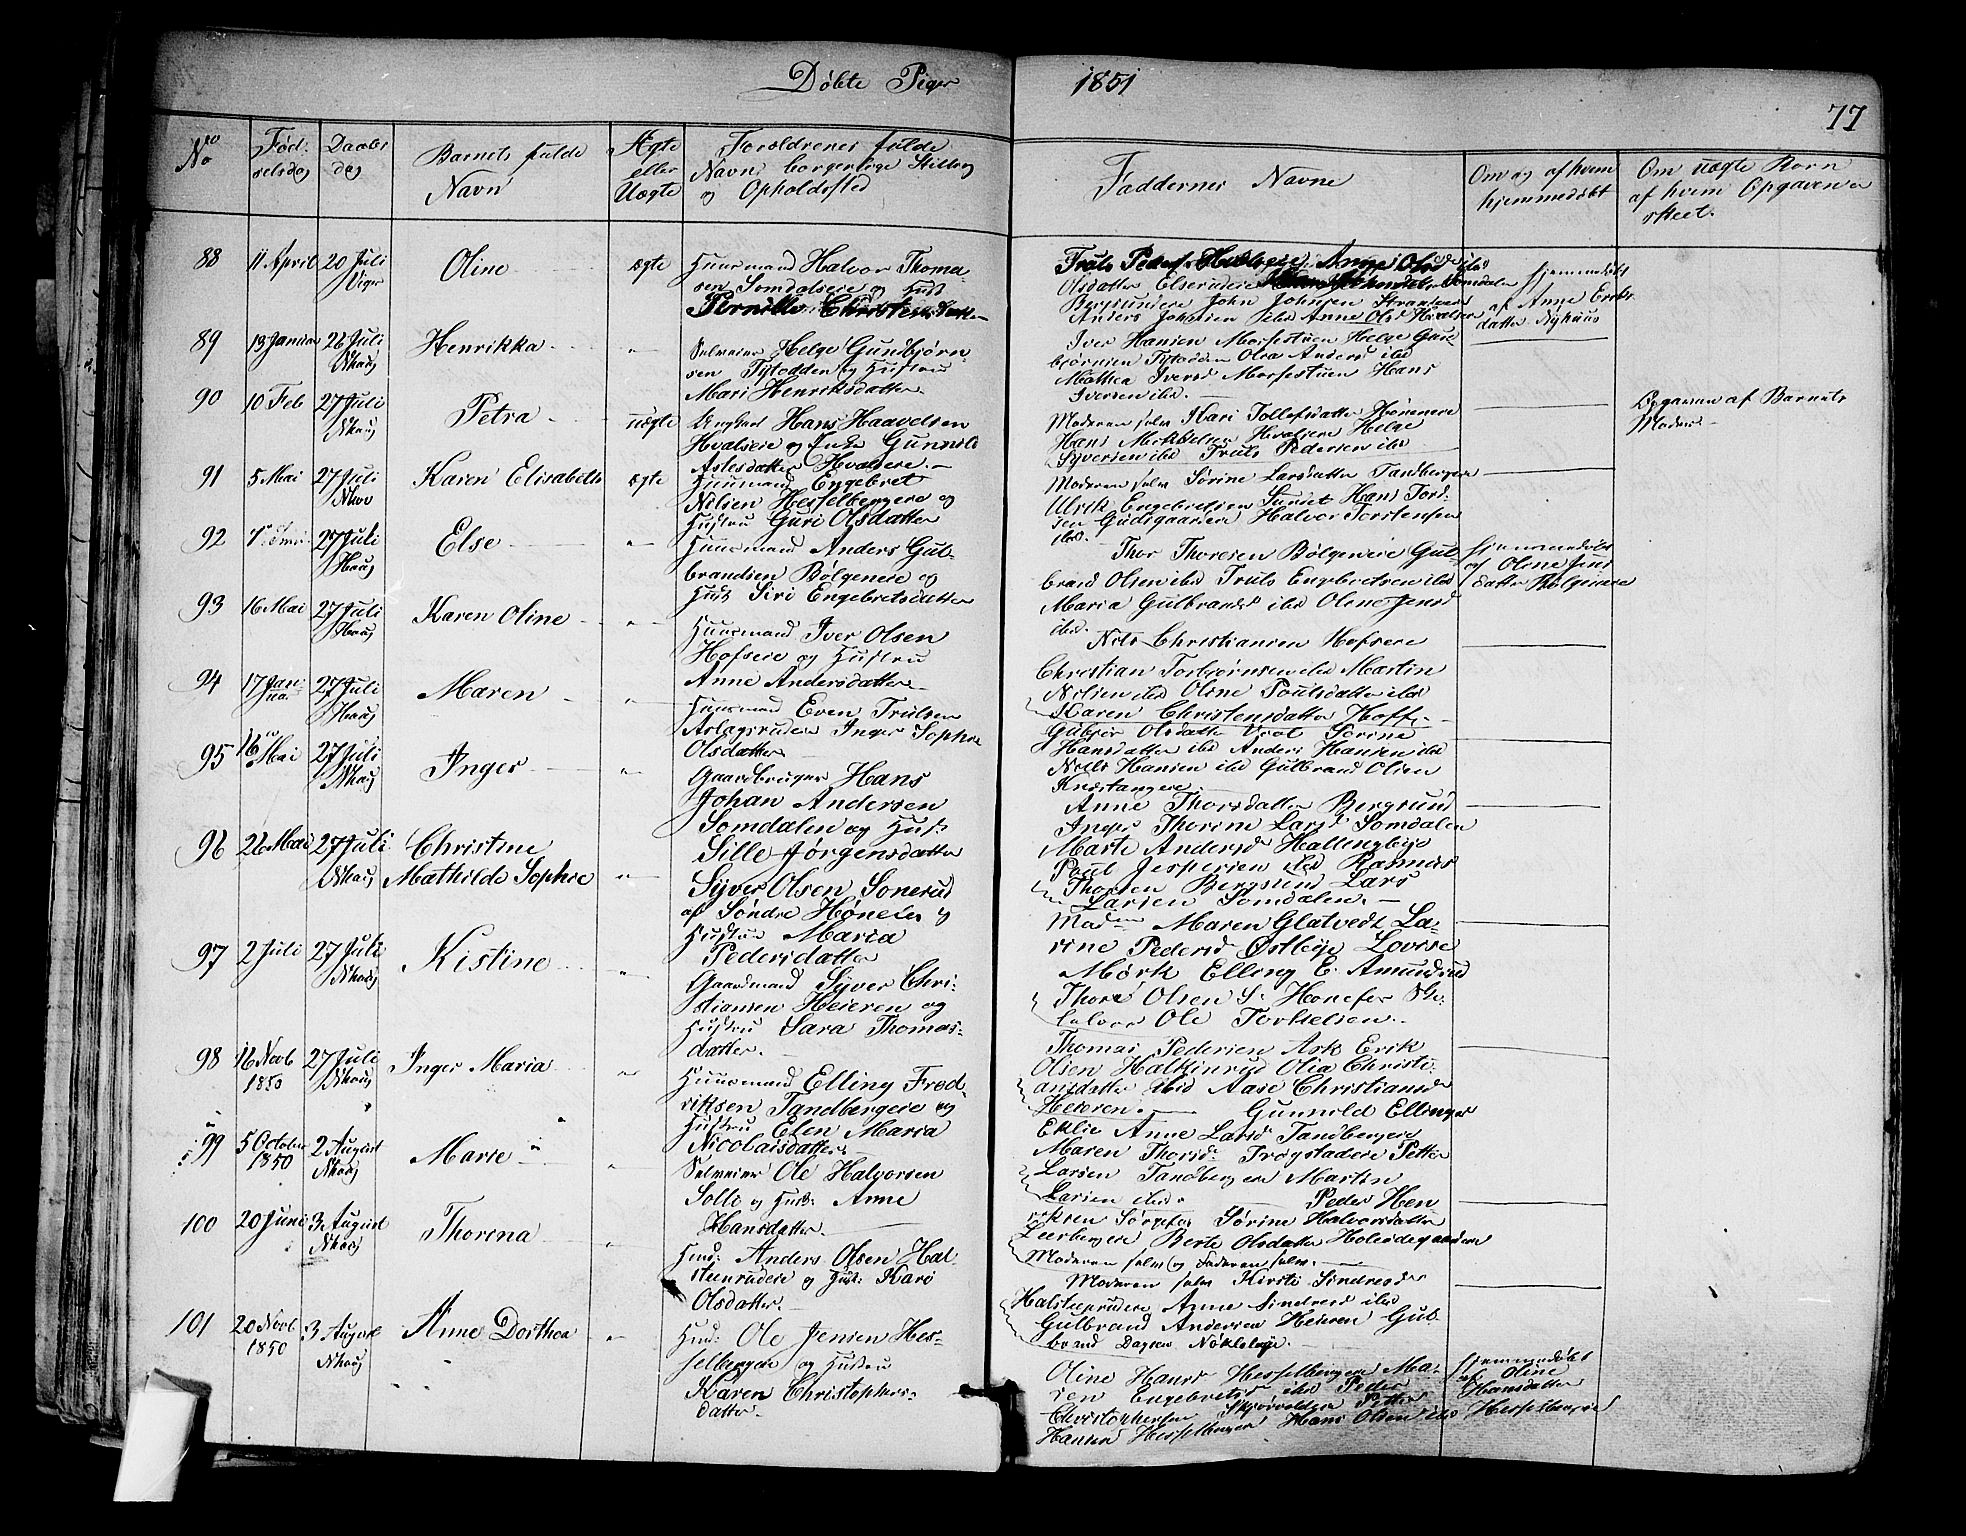 Døbte Piger 1851
77
No
Fød-
selsdag
Daabs
dag
Barnets fulde
Navn
Ægte
eller
Uægte
Forældrenes fulde
Navn, borgerlige Stilling
og Opholdssted
Faddernes Navne
Om og af hvem
hjemmedøbt
Om uægte Børn
af hvem Opgaven er
skeet.
88 11 April 20 Juli Oline ægte
Huusmand Halvor Thoma
sen Somdalseie og Hust
Pernille Christensdatter
Olsdatter Elserudeie
Bergsundeie John Johnsen
Anders Johnsen ibd Anne Olsd Hvalseie
hjemmedøbt
af Anne Eriks
datter Nyhuus
89 13 Januar 26 Juli Henrikka "
Selveier Helge Gundbjørn
sen Tytodden og Hustru
Mari Henriksdatter
Iver Hansen Morsestuen Helge Gun
bjørnsen Tytodden Olea Andersd ibd
Mathea Iversd Morsestuen Hans
Iversen ibd.
90 10 Feb 27 Juli Petra uægte
Ungkarl Hans Haavelsen
Hvalseie og Pike Gunnild
Aslesdatter Hvalseie.
Moderen selv Kari Tollefsdatter Høneneie
Hans Mikkelsen Hvalseie Helge
Syversen ibd Truls Pedersen ibd
Opgaven af Barnets
Moder
91 5 Mai 27 Juli Karen Elisabeth ægte
Huusmand Engebret
Nilsen Hesselbergeie og
Hustru Guri Olsdatter
Moderen selv Sørine Larsdatter Tandbergeie
Ulrik Engebretsen Hans Tord-
sen Gudsgaarden Halvor Torstensen
ibd.
92 27 Juli Else "
Huusmand Anders Gul-
brandsen Bølgeneie og
Hust Siri Engebretsdatter
Thor Thoresen Bølgeneie Gul-
brand Olsen ibd Truls Engebretsen ibd
Maria Gulbrandsd ibd Oline Jensd
ibd.
hjemmedøbt
af Oline Jens
datter Bølgeneie
93 16 Mai 27 Juli Karen Oline "
Huusmand Iver Olsen
Hofseie og Hustru
Anne Andersdatter
Nils Christiansen Hofseie
Christian Torbjørnsen ibd Martin
Nilsen ibd Oline Poulsdatter ibd
Karen Christensdatter Hoff
94 17 Jan-
uar 27 Juli Maren "
Huusmand Even Trulsen
Aslagsrudeie Inger Sophie
Olsdatter
Gubjør Olsdatter Sorine
Hansdatter ibd Anders Hansen ibd
Niels Hansen ibd Gulbrand Olsen
Knestangeie
95 16 Mai 27 Juli Inger "
Gaardbruger Hans
Johan Andersen
Somdalen og Hust
Sille Jørgensdatter
Anne Thorsdatter Bergsund
Inger Thorine Larsd Somdalen
Marte Andersd Hallingbye
Poul Jespersen ibd Rasmus
Thorsen Bergsund Lars
Larsen Somdalen.
96 26 Mai 27 Juli Christine
Mathilde Sophie "
Syver Olsen Sonerud
af Søndre Hønefos og
Hustru Maria
Pedersdatter
Maren Glatvedt La-
rine Pedersd Østbye Lovise
Mørk Elling E. Amundrud
Thore Olsen S: Hønefos
Ole Torkelsen
97 2 Juli 27 Juli Kistine "
Gaardmand Syver Chri-
stiansen Heieren og
Hustru Sara Thomas-
datter.
Thomas Pedersen Ask Erik
Olsen Halkinrud Olia Christi-
ansdatter ibid Aase Christiansd
Heieren.
98 16 Novb
1850 27 Juli Inger Maria "
Huusmand Elling Fred
riksen Tandbergeie og
Hustru Elen Maria
Nicolaisdatter
Gunnild Ellingsd
Eklie Anne Larsd Tandbergeie
Maren Thorsd Trøgstadeie Petter
Larsen Tandbergeie Martin
Larsen ibd
99 5 October
1850 2 August Marie "
Selveier Ole Halvorsen
Solli og Hust: Anne
Hansdatter
Peder Hen
riksen Sørgefos Sørine Halvorsdatter
Leerbergeie Berte Olsdatter
Moderen selv og Faderen selv.
100 20 Juni 3 August Thorina "
Hmd: Anders Olsen Hal-
steinrudeie og Hust: Kari
Olsdatter
Moderen selv Kirsti Sindresd
Halsteinrudeie Anne Sindresd ibd
Gulbrand Andersen Heieren Gul-
brand Dagsen Nøklebye.
101 20 Novb
1850 3 August Anne Dorthea "
Hmd: Ole Jensen Hes-
selbergeie og Hustru
Karen Christophers-
datter.
Oline Hansd Hesselbergeie Ma-
ren Engebretsd ibd Peder
Christophersen Skjørvolden Petter
Hansen Hesselbergeie Hans Olsen ibd
hjemmedøbt
af Oline
Hansdatter
Hesselbergeie